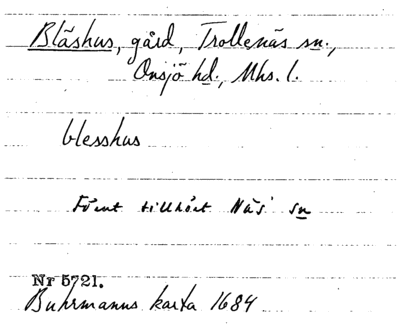 Bläshus, gård, Trollenäs sn.,
Onsjö hd., Mhs. l.
blesshus
Förut tillhört Näs sn
Nr 5721.
Buhrmanns karta 1684